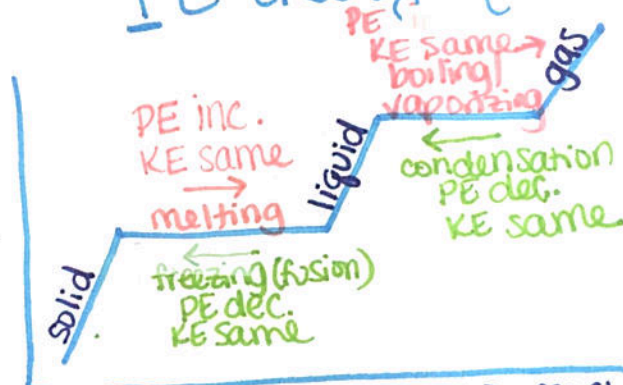 PE
KE same
boiling/
vaporizing
gas
PE inc.
KE same
melting
liquid
condensation
PE dec.
KE same
freezing (fusion)
PE dec.
KE same
solid